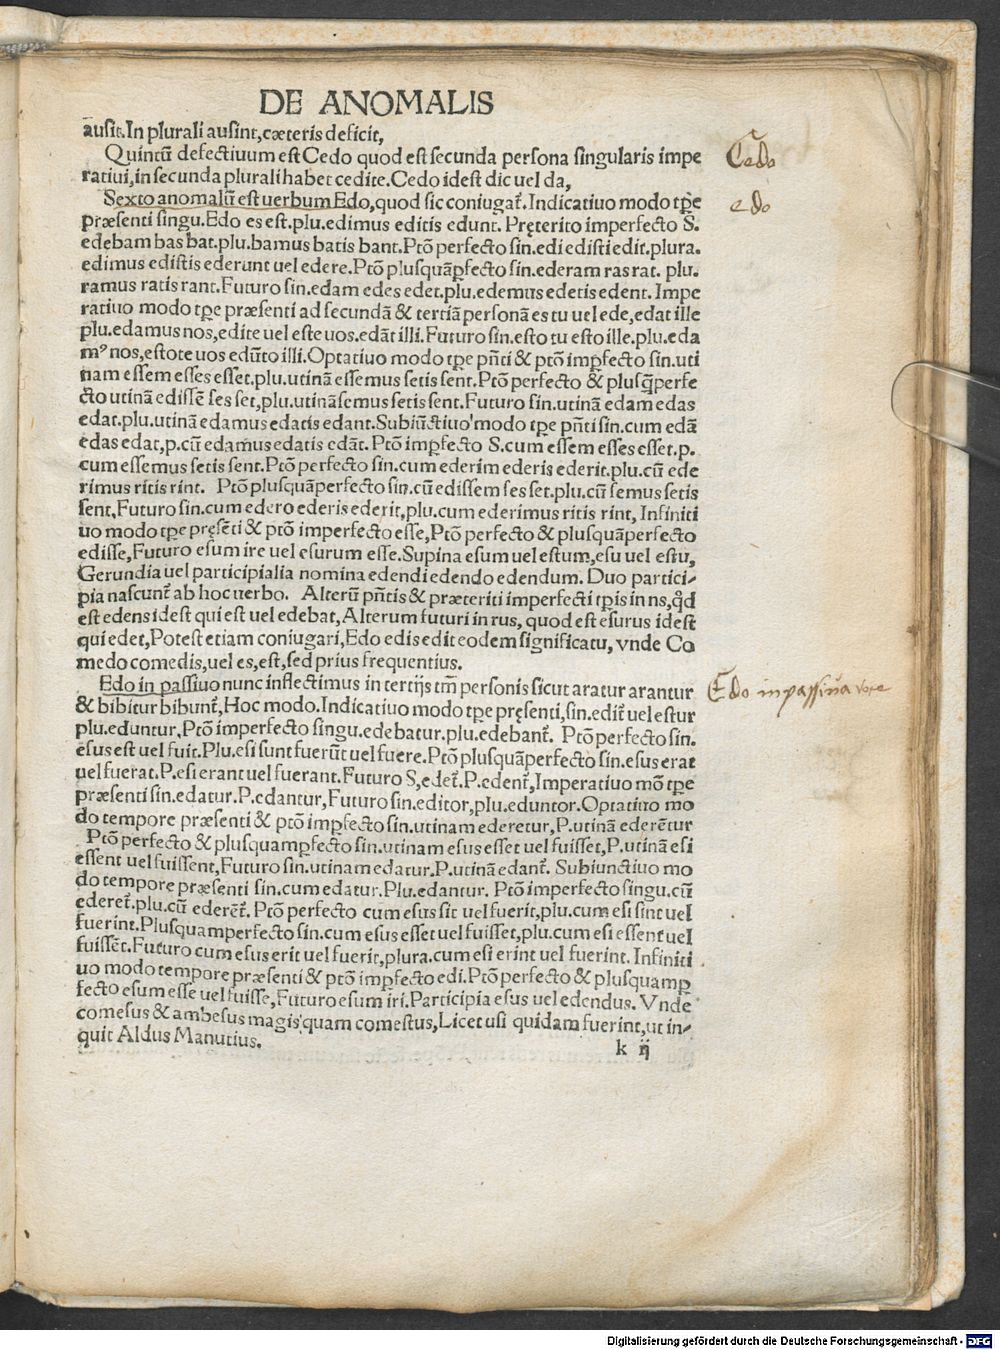 DE ANOMALIS
ausit. In plurali ausint, cæteris deficit,
Quintū defectiuum est Cedo quod est secunda persona singularis impe
ratiui, in secunda plurali habet cedite. Cedo idest dic uel da,
Cedo
Sexto anomalū est uerbum Edo, quod sic coniugat᷑. Indicatiuo modo tp̄e
edo
præsenti singu. Edo es est. plu. edimus editis edunt. Pręterito imperfecto S.
edebam bas bat. plu. bamus batis bant. Ptō perfecto sin. edi edisti edit. plura.
edimus edistis ederunt uel edere. Ptō plusquāꝑfecto sin. ederam ras rat. plu.
ramus ratis rant. Futuro sin. edam edes edet. plu. edemus edetis edent. Impe
ratiuo modo tp̄e præsenti ad secundā & tertiā personā es tu uel ede, edat ille
plu. edamus nos, edite uel este uos. edāt illi. Futuro sin. esto tu esto ille. plu. eda
mꝰ nos, estote uos edūto illi. Optatiuo modo tp̄e pñti & ptō imꝑfecto sin. uti
nam essem esses esset. plu. utinā essemus setis sent. Ptō perfecto & plusq̄ꝑerfe
cto utinā edissē ses set, plu. utinā semus setis sent. Futuro sin. utinā edam edas
edat. plu. utinā edamus edatis edant. Subiūctiuo modo tp̄e pñti sin. cum edā
edas edat, p. cū edamus edatis edāt. Ptō imꝑfecto S. cum essem esses esset. p.
cum essemus setis sent. Ptō perfecto sin. cum ederim ederis ederit. plu. cū ede
rimus ritis rint. Ptō plusquāperfecto sin. cū edissem ses set. plu. cū semus setis
sent, Futuro sin. cum edero ederis ederit, plu. cum ederimus ritis rint, Infiniti
uo modo tp̄e pręsēti & ptō imperfecto esse, Ptō perfecto & plusquāperfecto
edisse, Futuro esum ire uel esurum esse. Supina esum uel estum, esu uel estu,
Gerundia uel participialia nomina edendi edendo edendum. Duo partici-
pia nascunt᷑ ab hoc uerbo. Alterū pñtis & præteriti imperfecti tp̄is in ns, qđ
est edens idest qui est uel edebat, Alterum futuri in rus, quod est esurus idest
qui edet, Potest etiam coniugari, Edo edis edit eodem significatu, vnde Co
medo comedis, uel es, est, sed prius frequentius.
Edo in passiuo nunc inflectimus in tertijs tm̄ personis sicut aratur arantur
Edo in passiua
& bibitur bibunt᷑, Hoc modo. Indicatiuo modo tp̄e pręsenti, sin. edit᷑ uel estur
plu. eduntur, Ptō imperfecto singu. edebatur. plu. edebant᷑. Ptō perfecto sin.
esus est uel fuit. Plu. esi sunt fuerūt uel fuere. Ptō plusquāperfecto sin. esus erat
uel fuerat. P. esi erant uel fuerant. Futuro S, edet᷑. P. edent᷑, Imperatiuo mō tp̄e
præsenti sin. edatur. P. edantur, Futuro sin. editor, plu. eduntor. Optatiuo mo
do tempore præsenti & ptō imꝑfecto sin. utinam ederetur, P. utinā ederētur
Ptō perfecto & plusquamꝑfecto sin. utinam esus esset uel fuisset, P. utinā esi
essent uel fuissent, Futuro sin. utinam edatur. P. utinā edant᷑. Subiunctiuo mo
do tempore præsenti sin. cum edatur. Plu. edantur. Ptō imperfecto singu. cū
ederet᷑. plu. cū ederēt᷑. Ptō perfecto cum esus sit uel fuerit, plu. cum esi sint uel
fuerint. Plusquamperfecto sin. cum esus esset uel fuisset, plu. cum esi essent uel
fuissēt. Futuro cum esus erit uel fuerit, plura. cum esi erint uel fuerint. Infiniti
uo modo tempore præsenti & ptō imꝑfecto edi. Ptō perfecto & plusquamꝑ
fecto esum esse uel fuisse, Futuro esum iri. Participia esus uel edendus. Vnde
comesus & ambesus magis quam comestus, Licet usi quidam fuerint, ut in-
quit Aldus Manutius.
k ij
Digitalisierung gefördert durch die Deutsche Forschungsgemeinschaft - DFG